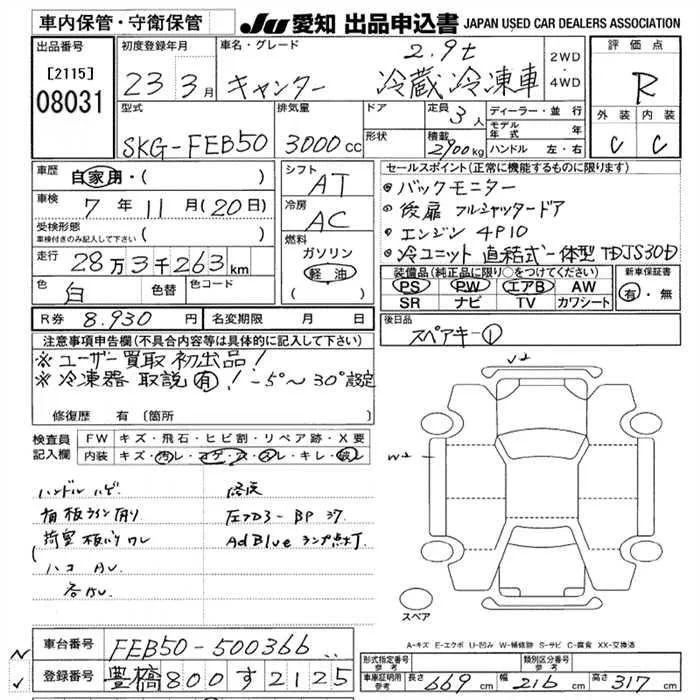 車内保管・守衛保管
JU 愛知 出品申込書 JAPAN USED CAR DEALERS ASSOCIATION
出品番号
[2115]
08031
初度登録年月
23年 3月
車名・グレード
キャンター 2.9t 冷蔵冷凍車
2WD
4WD
評価点
R
外装 内装
C C
型式
SKG-FEB50
排気量
3000cc
ドア
形状
定員 3人
積載 2900kg
ディーラー・並行
モデル年式 年
ハンドル 左・右
車歴
自家用・( )
車検
7年11月(20日)
受検形態
車検付きのみ記入して下さい
( )
走行
28万3千263km
色
白
色替
色コード
シフト
AT
冷房
AC
燃料
ガソリン
軽油
( )
セールスポイント(正常に機能するものに限ります)
バックモニター
後扉 フルシャッタードア
エンジン 4P10
冷ユニット 直結式一体型 TDJS30D
装備品(純正品に限り○をつけてください)
PS PW エアB AW
SR ナビ TV カワシート
新車保証書
有・無
R券 8.930円
名変期限 月 日
後日品
スペアキー①
注意事項申告欄(不具合内容等は具体的に記入して下さい)
※ユーザー買取 初出品!
※冷凍器 取説 有! -5°~30°設定
修復歴 有 〔箇所 〕
検査員記入欄
FW キズ・飛石・ヒビ割・リペア跡・X要
内装 キズ・汚レ・コゲ・穴・スレ・キレ・破レ
ハンドル ハゲ
荷室 板バリ ワレ
ハコ AU
左フロアー BP 37
AdBlue ランプ点灯
U2
W2
スペア
A-キズ E-エクボ U-凹み W-補修跡 S-サビ C-腐食 XX-交換済
車台番号
FEB50-500366
登録番号
豊橋 800 す 2125
形式指定番号
参考
類別区分番号
参考
車庫証明用
参考
長さ 669cm
幅 216cm
高さ 317cm